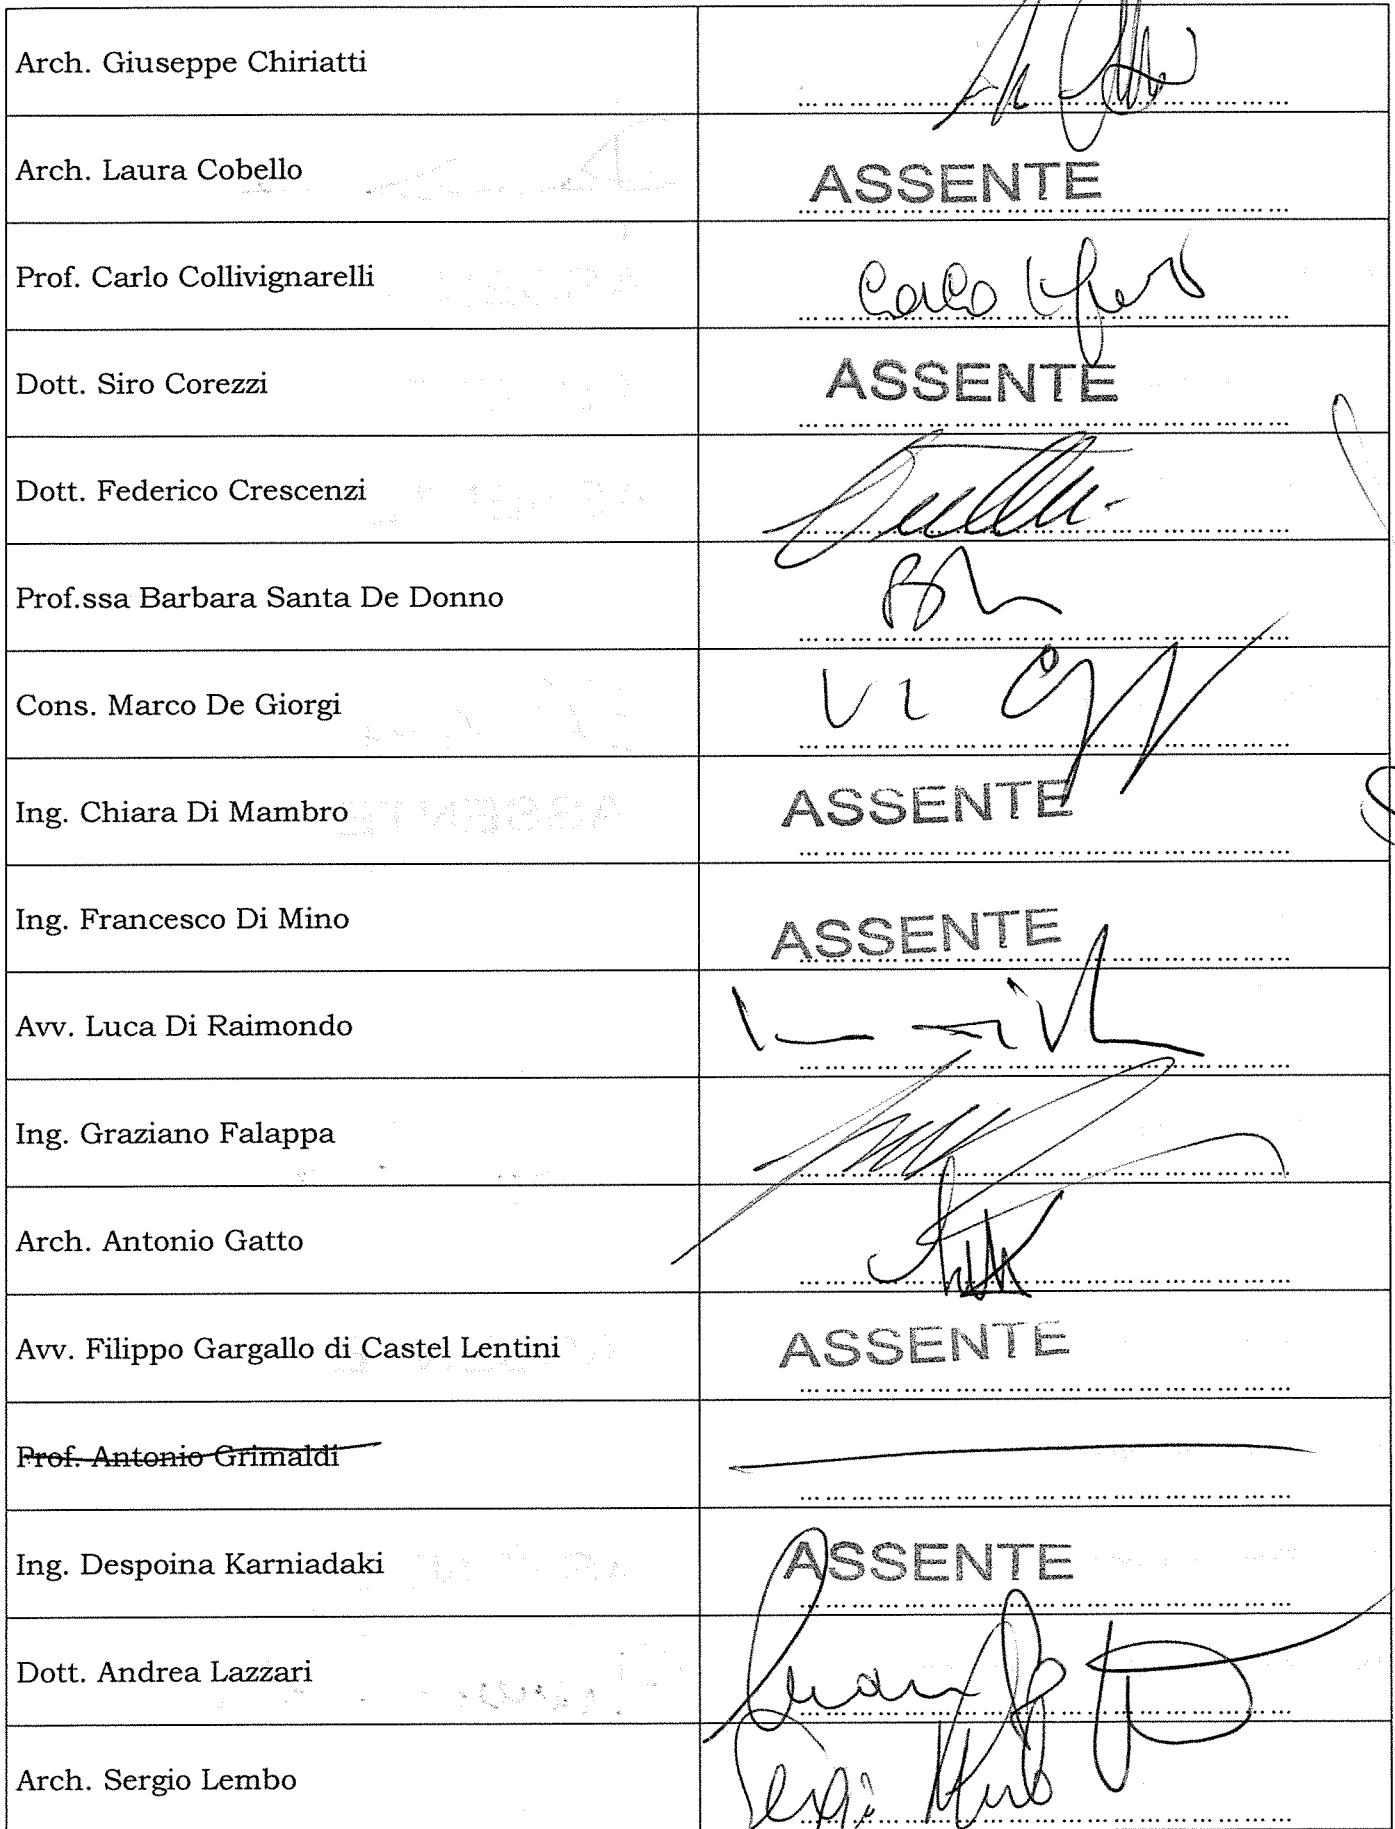 Arch. Giuseppe Chiriatti
Arch. Laura Cobello ASSENTE
Prof. Carlo Collivignarelli
Dott. Siro Corezzi ASSENTE
Dott. Federico Crescenzi
Prof.ssa Barbara Santa De Donno
Cons. Marco De Giorgi
Ing. Chiara Di Mambro ASSENTE
Ing. Francesco Di Mino ASSENTE
Avv. Luca Di Raimondo
Ing. Graziano Falappa
Arch. Antonio Gatto
Avv. Filippo Gargallo di Castel Lentini ASSENTE
Prof. Antonio Grimaldi
Ing. Despoina Karniadaki ASSENTE
Dott. Andrea Lazzari
Arch. Sergio Lembo